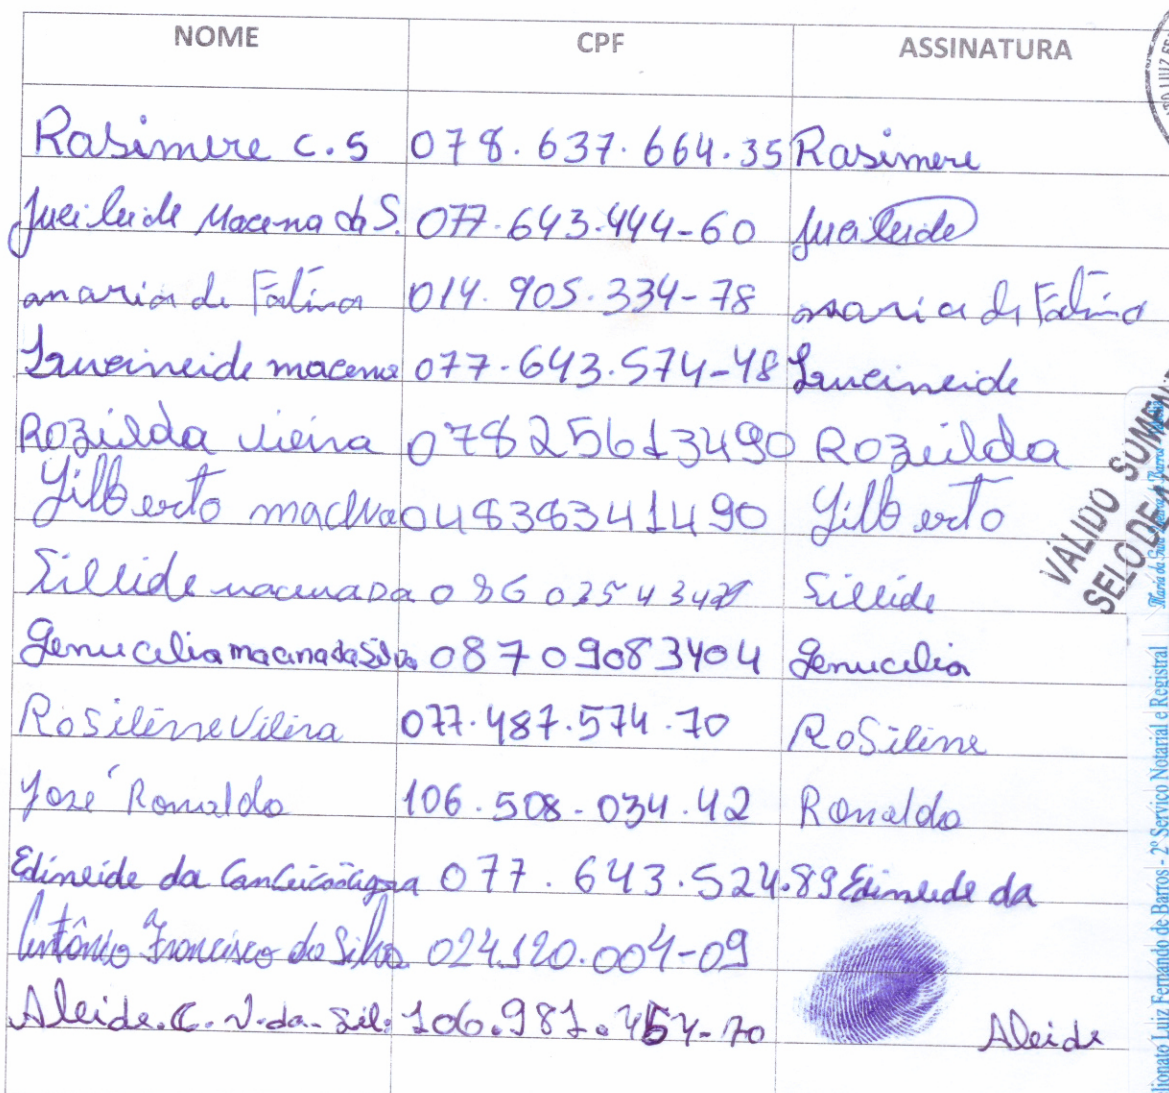 NOME CPF ASSINATURA
Rasimere c.s 078.637.664.35 Rasimere
Jucileide Macena da S. 077.643.444-60 Jucileide
maria de Fátima 014.905.334-78 maria de Fátima
Lucineide macena 077.643.574-48 Lucineide
Rozilda vieira 07825613490 Rozeilda
Gilberto 04838341490 Gilberto
Sileide macena Da Sileide
Genucelia macena da Silva 08709083404 Genucelia
Rosilene Vileira 077.487.574.70 Rosilene
José Ronaldo 106.508-034.42 Ronaldo
Edineide da 077.643.524.89 Edineide da
Antônio Francisco da Silva 024.120.004-09
Aleide.C.V.da-Sil. 106.981.454-70 Aleide
VÁLIDO SOMENTE
SELO DE
Maria da
Luiz Fernando de Barros - 2º Serviço Notarial e Registral